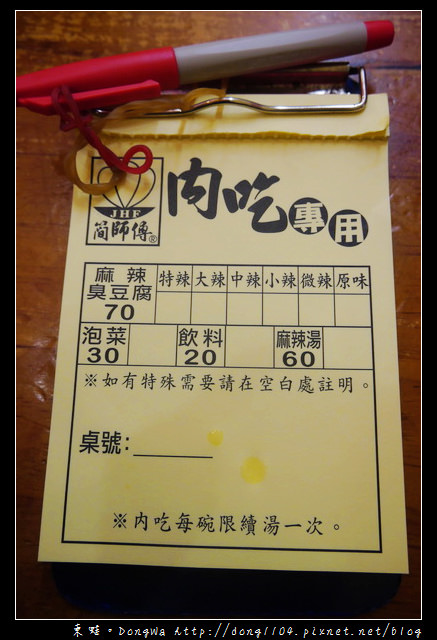 內吃專用
JHF
簡師傅®
麻辣 特辣 大辣 中辣 小辣 微辣 原味
臭豆腐
70
泡菜 飲料 麻辣湯
30 20 60
※如有特殊需要請在空白處註明。
桌號:
※內吃每碗限續湯一次。
東蛙。DongWa http://dong1104.pixnet.net/blog